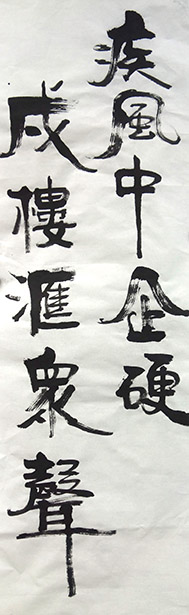 疾風中企硬
戍樓滙眾聲